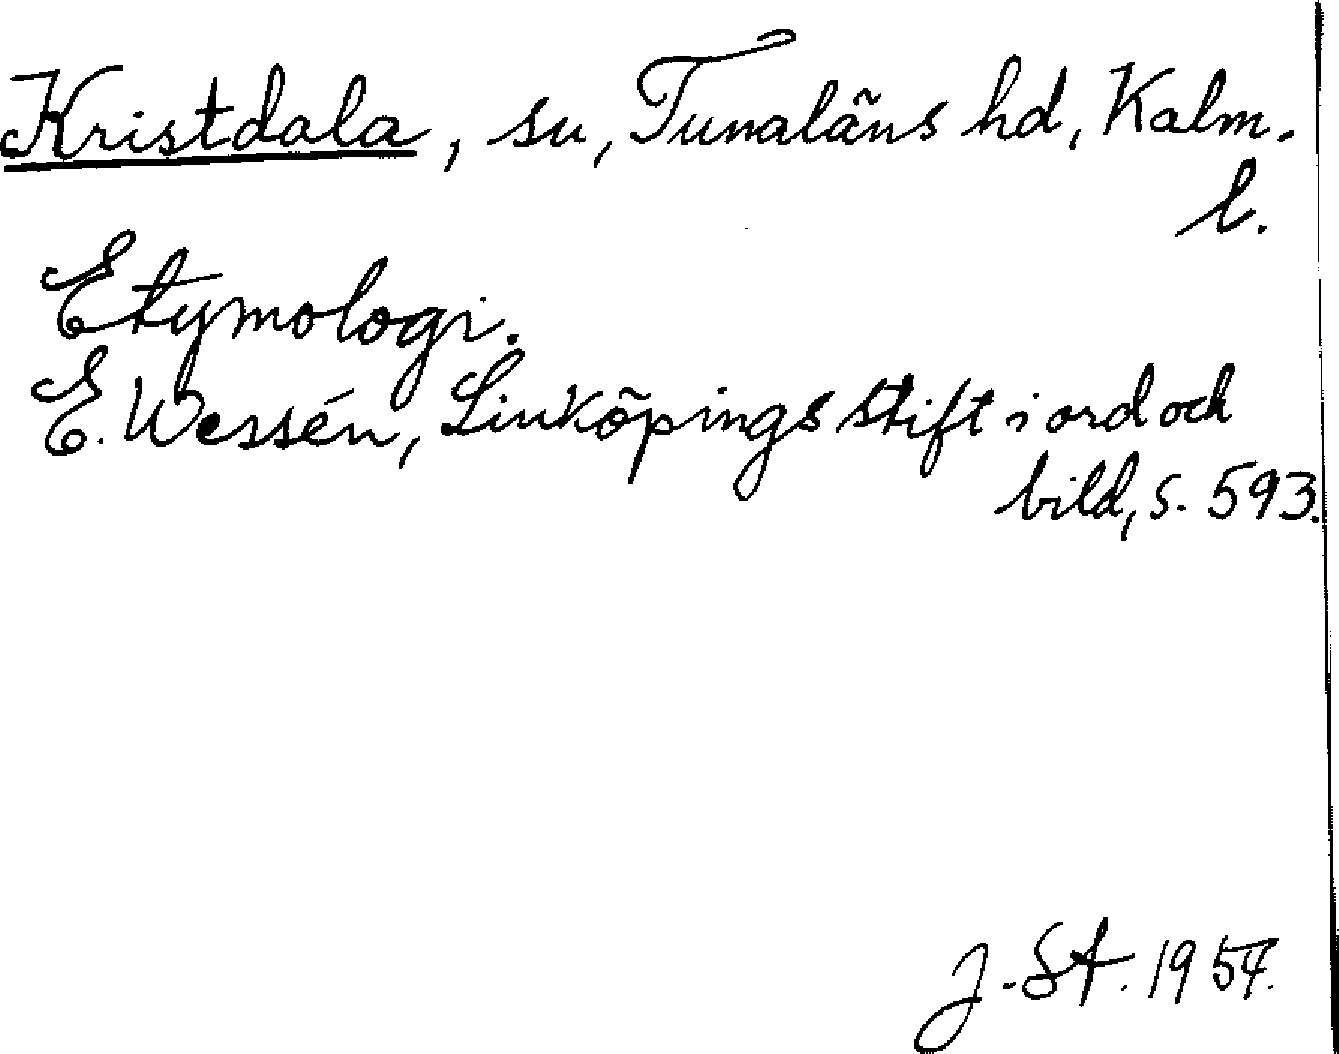 Kristdala, su, Tunaläns hd, Kalm.
l.
Etymologi.
E. Wessén, Linköpings stift i ord och
bild, s. 593.
J. St. 1957.